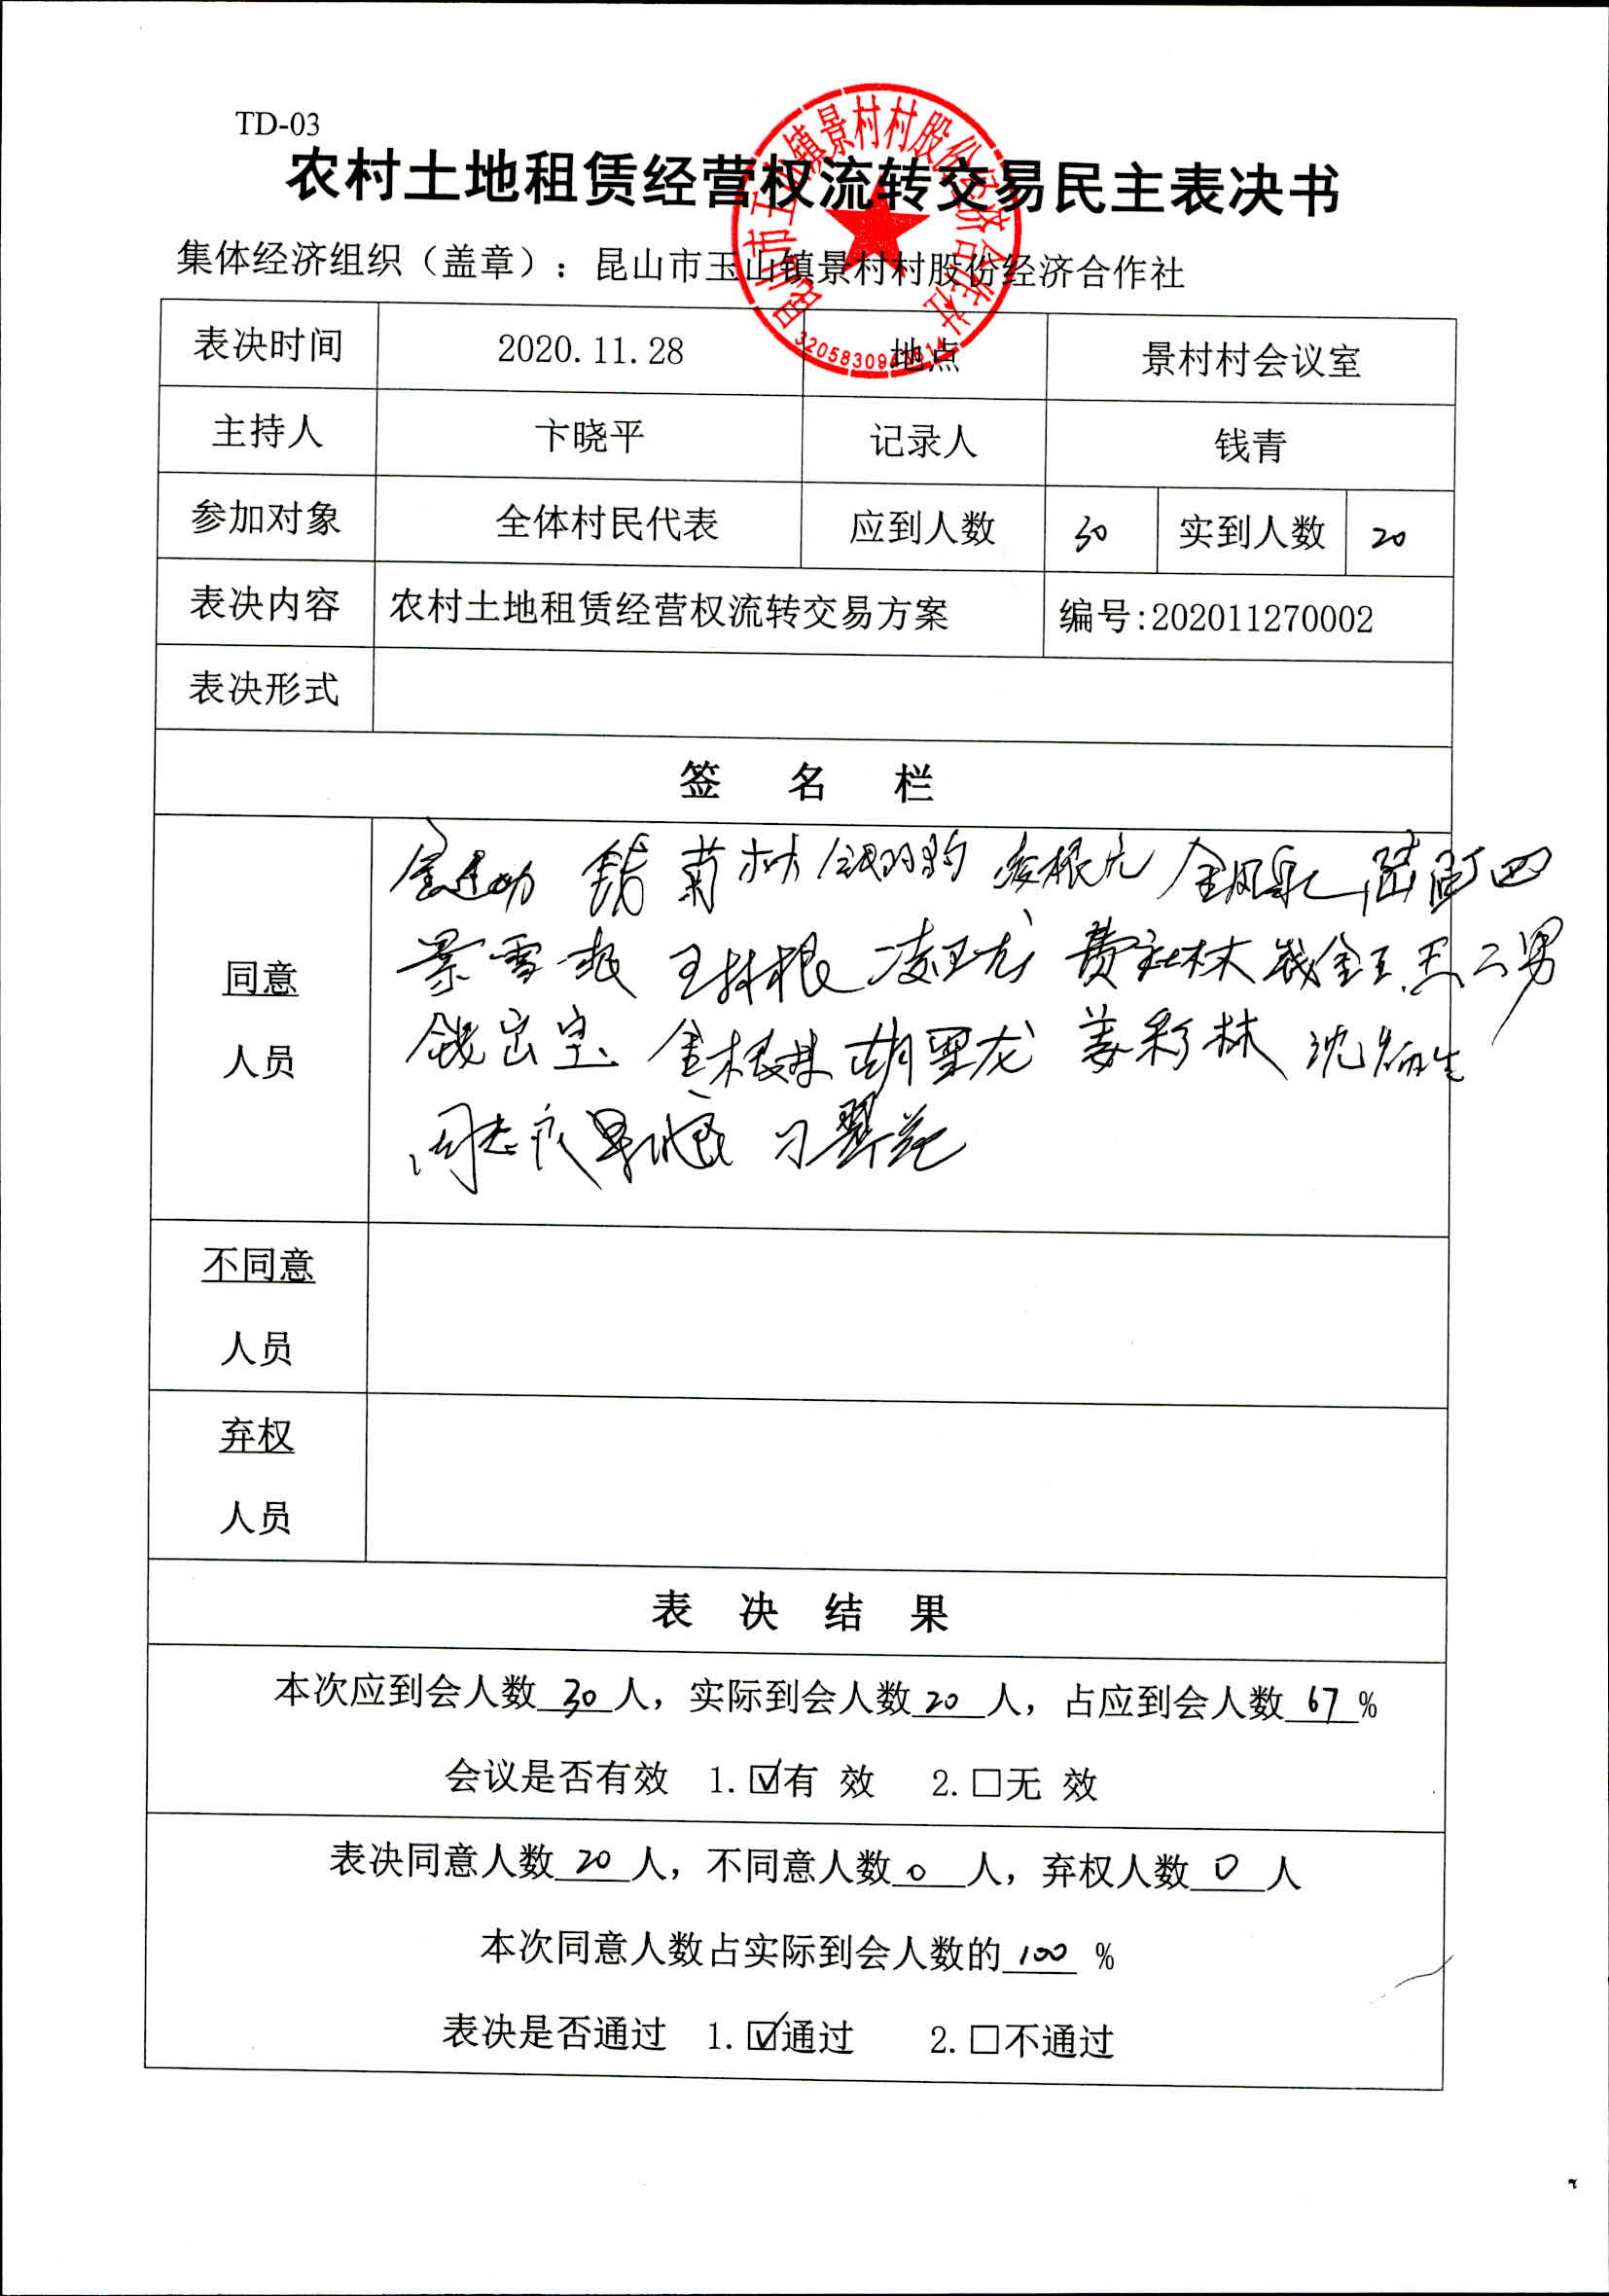 TD-03
农村土地租赁经营权流转交易民主表决书
昆山市玉山镇景村村股份经济合作社
集体经济组织（盖章）：昆山市玉山镇景村村股份经济合作社
表决时间 2020.11.28 地点 景村村会议室
主持人 卞晓平 记录人 钱青
参加对象 全体村民代表 应到人数 30 实到人数 20
表决内容 农村土地租赁经营权流转交易方案 编号:202011270002
表决形式
签 名 栏
同意
人员
菊林 金凤泉
王林根 凌玉龙 钱金玉 王二男
金根林 姜彩林 沈炳生
不同意
人员
弃权
人员
表 决 结 果
本次应到会人数 30 人，实际到会人数 20 人，占应到会人数 67 %
会议是否有效 1.☑有 效 2.□无 效
表决同意人数 20 人，不同意人数 0 人，弃权人数 0 人
本次同意人数占实际到会人数的 100 %
表决是否通过 1.☑通过 2.□不通过